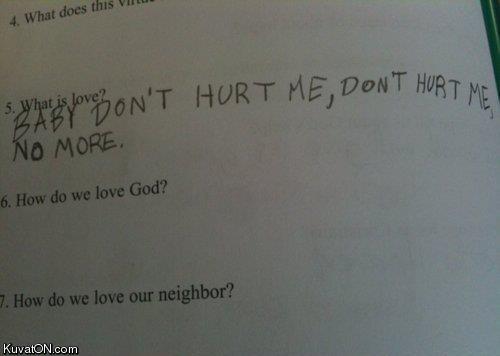 4. What does this
5. What is love?
BABY DON'T HURT ME, DON'T HURT ME,
NO MORE.
6. How do we love God?
7. How do we love our neighbor?
KuvatON.com